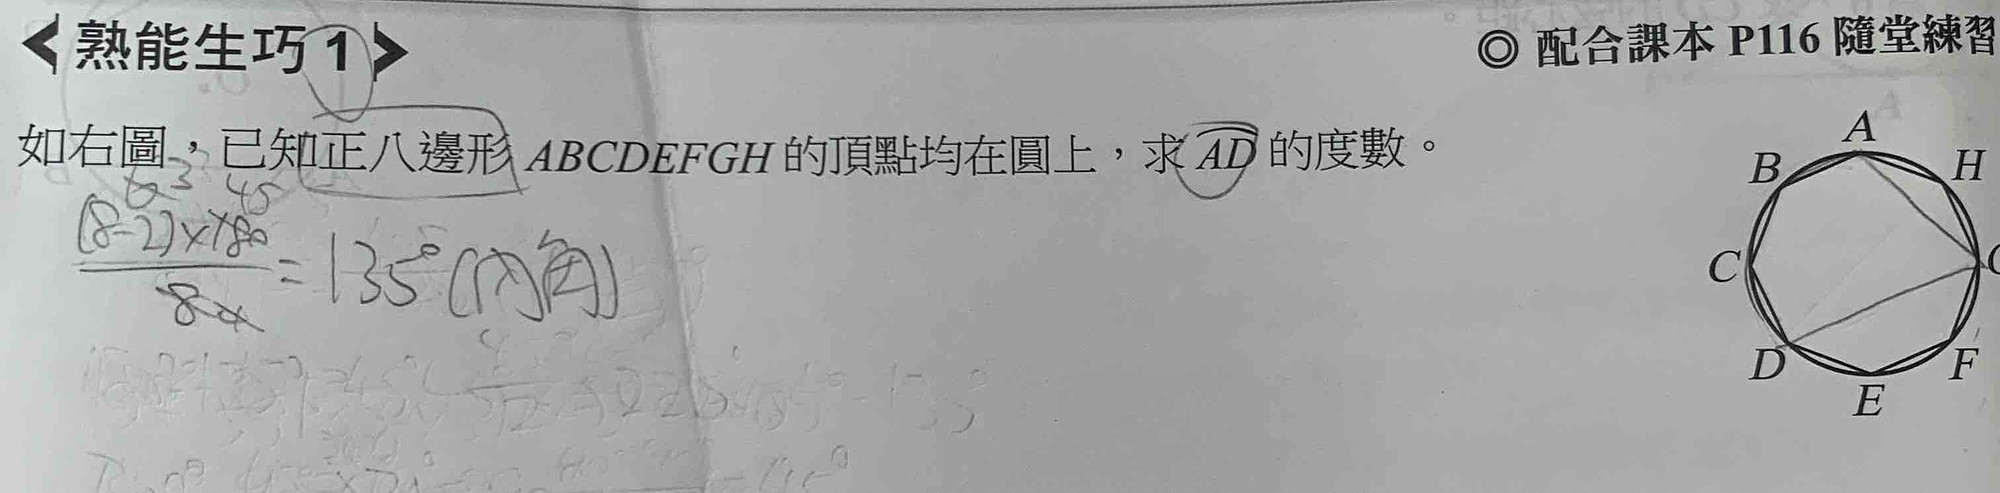 熟能生巧 1
◎ 配合課本 P116 隨堂練習
如右圖,已知正八邊形 ABCDEFGH 的頂點均在圓上,求 AD 的度數。
3 45
(8-2)×180
= 135° (內角)
8
A
B
H
C
D
F
E